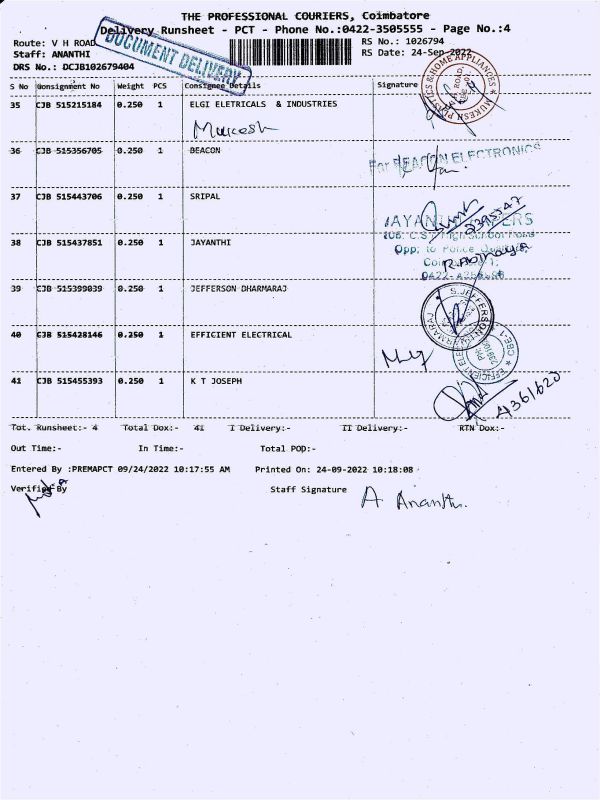 THE PROFESSIONAL COURIERS, Coimbatore
Delivery Runsheet - PCT - Phone No.:0422-3505555 - Page No.:4
Route: V H ROAD
RS No.: 1026794
Staff: ANANTHI
RS Date: 24-Sep-2022
DRS No.: DCJB102679404
DOCUMENT DELIVERY
S No Consignment No Weight PCS Consignee Details Signature
35 CJB 515215184 0.250 1 ELGI ELETRICALS & INDUSTRIES
Mukesh
MUKESH PLASTICS & HOME APPLIANCES
36 CJB 515356705 0.250 1 BEACON
For BEACON ELECTRONICS
37 CJB 515443706 0.250 1 SRIPAL
38 CJB 515437851 0.250 1 JAYANTHI
Opp: to Police
39 CJB 515399039 0.250 1 JEFFERSON DHARMARAJ
S.JEFFERSON
40 CJB 515428146 0.250 1 EFFICIENT ELECTRICAL
EFFICIENT
CBE-1
41 CJB 515455393 0.250 1 K T JOSEPH
4361620
Tot. Runsheet:- 4 Total Dox:- 41 I Delivery:- II Delivery:- RTN Dox:-
Out Time:- In Time:- Total POD:-
Entered By :PREMAPCT 09/24/2022 10:17:55 AM Printed On: 24-09-2022 10:18:08
Verified By Staff Signature
A Ananthi.